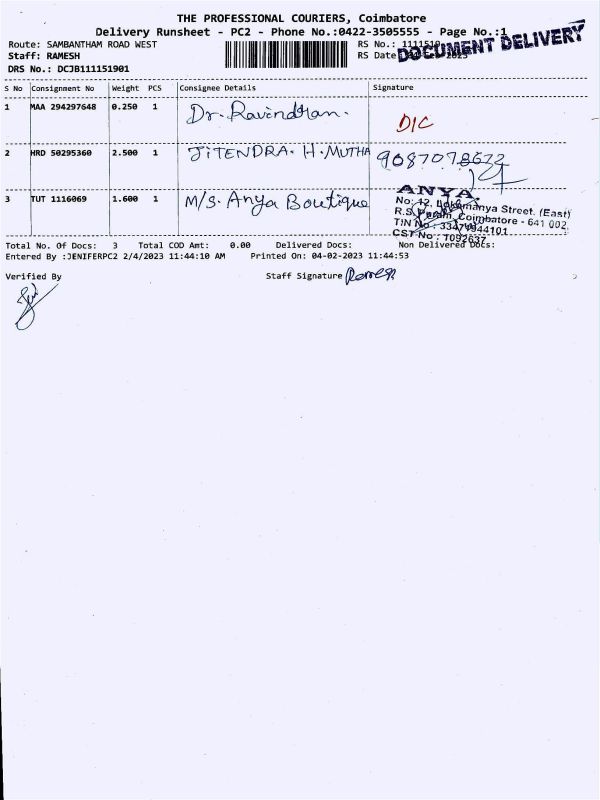 THE PROFESSIONAL COURIERS, Coimbatore
Delivery Runsheet - PC2 - Phone No.:0422-3505555 - Page No.:1
Route: SAMBANTHAM ROAD WEST
RS No.:
Staff: RAMESH
RS Date
DOCUMENT DELIVERY
DRS No.: DCJB111151901
S No Consignment No Weight PCS Consignee Details Signature
1 MAA 294297648 0.250 1 Dr. Ravindran. D/C
2 HRD 50295360 2.500 1 JITENDRA. H. MUTHA 9087078622
3 TUT 1116069 1.600 1 M/S. Anya Boutique
ANYA
No: 12, Lokamanya Street. (East)
R.S. Puram, Coimbatore - 641 002.
TIN No : 33471944101
CST No : 1092637
Total No. Of Docs: 3 Total COD Amt: 0.00 Delivered Docs: Non Delivered Docs:
Entered By :JENIFERPC2 2/4/2023 11:44:10 AM Printed On: 04-02-2023 11:44:53
Verified By Staff Signature Ramesh